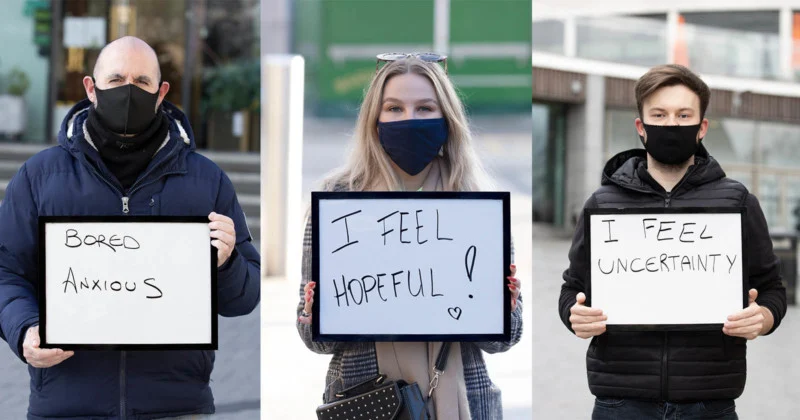 BORED
ANXIOUS
I FEEL
HOPEFUL!
I FEEL
UNCERTAINTY